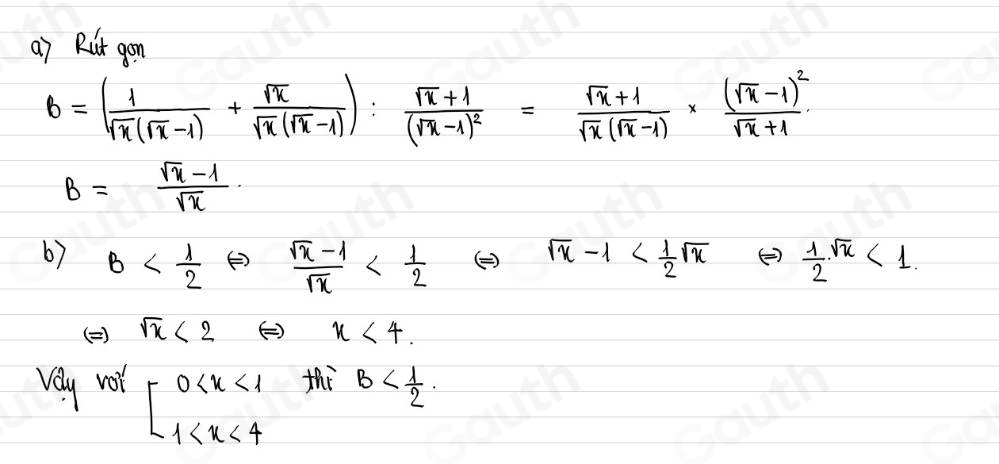 a) Rút gọn
B = (1/(√x(√x-1)) + √x/(√x(√x-1))) : (√x+1)/(√x-1)² = (√x+1)/(√x(√x-1)) × (√x-1)²/(√x+1).
B = (√x-1)/√x.
b) B < 1/2 ⇔ (√x-1)/√x < 1/2 ⇔ √x-1 < 1/2√x ⇔ 1/2.√x < 1.
⇔ √x < 2 ⇔ x < 4.
Vậy với [ 0<x<1 thì B < 1/2.
1<x<4